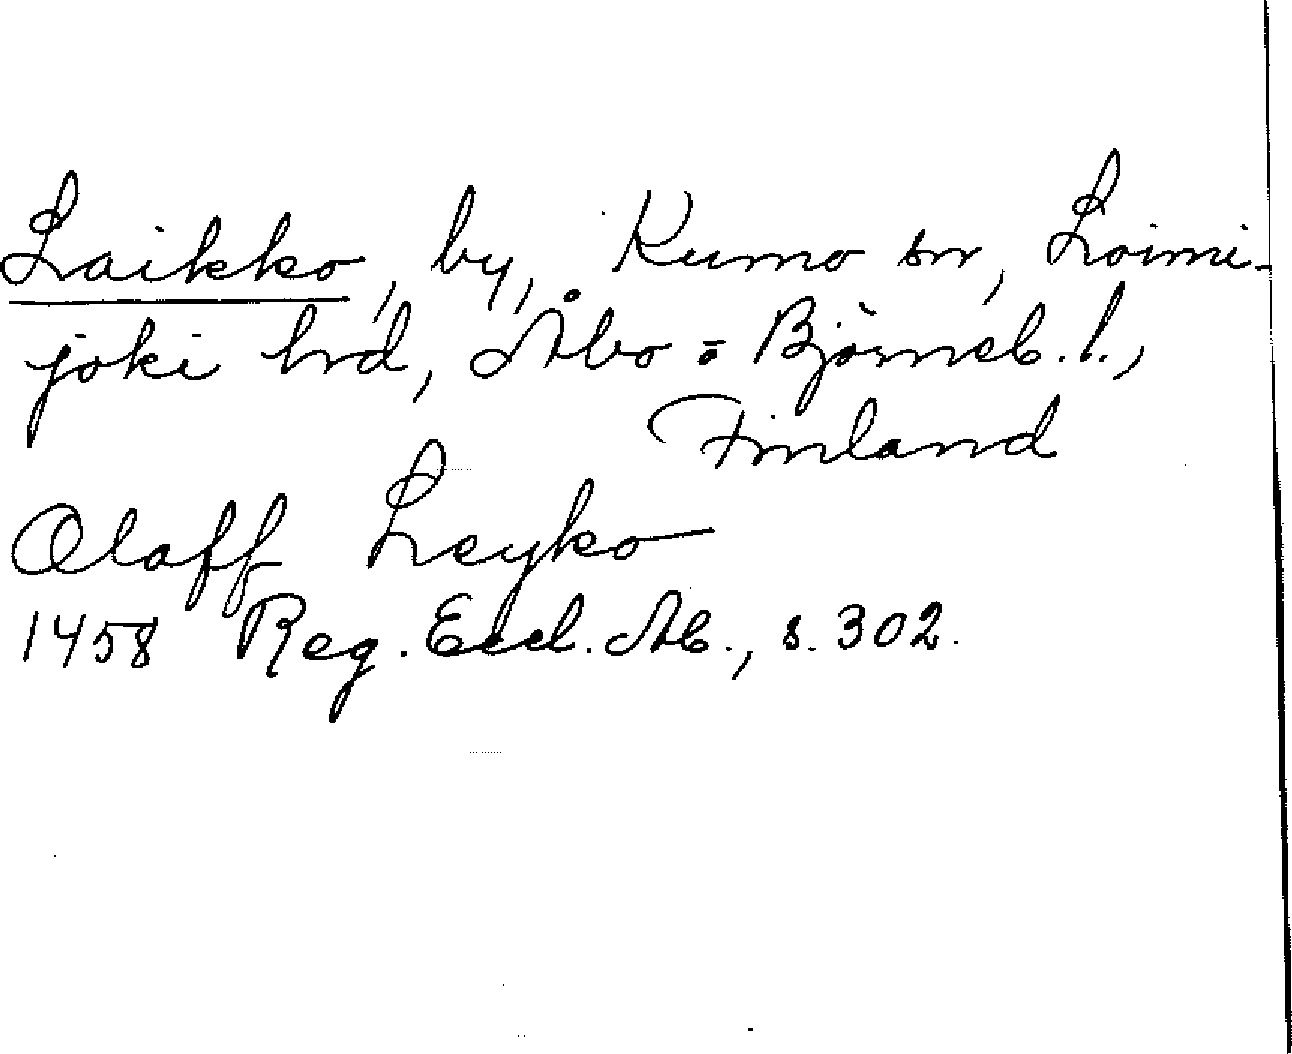 Laikko, by, Kumo sn, Loimi-
joki hrd, Åbo = Björneb. l.,
Finland
Olaff Leyko
1458 Reg. Eccl. Ab., s. 302.